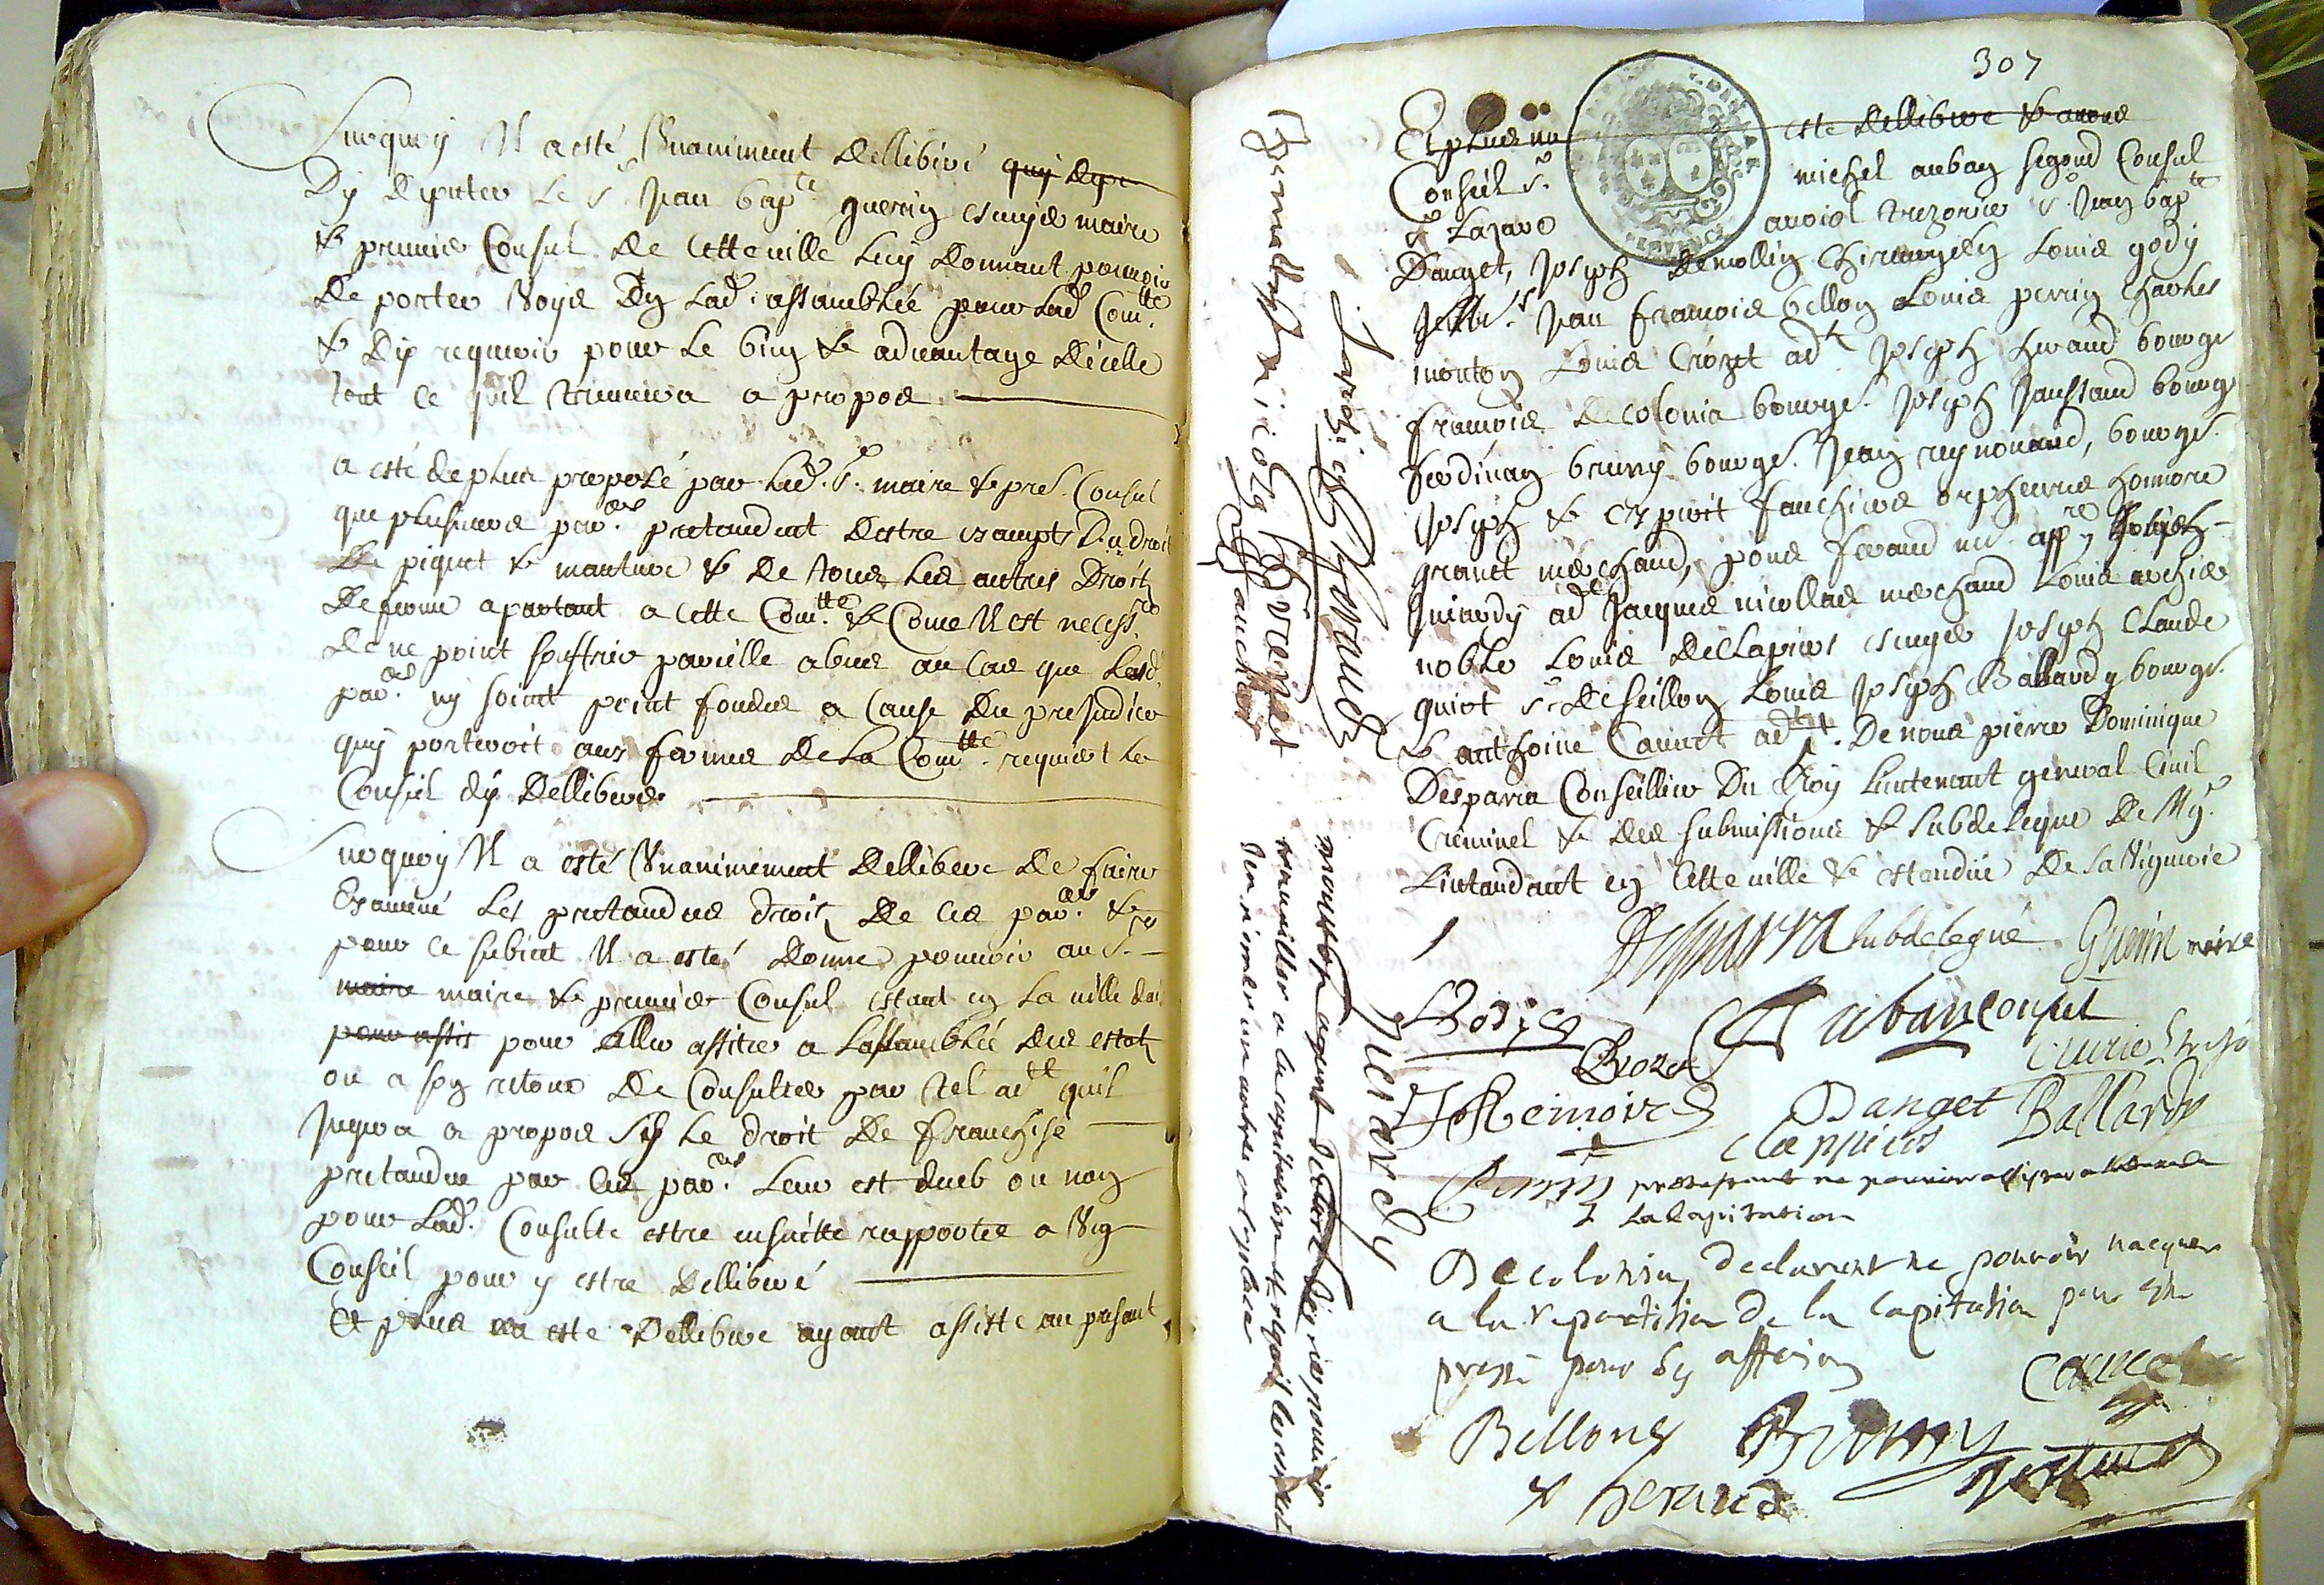 Surquoy Il a esté Unanimement dellibéré quy depu
Dy deputer le Sr Jean bapte guerin escuyer maire
& premier Consul de cette ville luy donnant pouvoir
de porter Voyx En lad. assamblée pour lad. Comtté
& dy requerir pour le bien & advantage dicelle
tout ce quil trouvera a propos
a esté de plus proposé par led. Sr. maire & pr. Consul
que plusieurs parers pretandent destre exampts du droit
de piquet & mouture & de tous les autres droits
de ferme apartant a cette Comtté & Come Il est necessre
de ne point souffrir pareille abus au cas que lesd.
parers ny soient point fondés a cause du prejudice
quy porteroit aux fermes de la Comtté requiert le
Conseil dy dellibérer
Surquoy Il a esté Unanimement dellibéré de faire
Examiné les pretandus droits de ces parers &
pour ce subiet Il a esté donné pouvoir au Sr
maire maire & premier Consul estant en la ville dai
pour assis pour aller assiter a lassamblée des estats
ou a son retour de Consulter par tel adt quil
Jugera a propos sy le droit de franchise
pretandue par les parers leur est deub ou non
pour lad. Consulte estre ensuitte rapportée a Un
Conseil pour y estre dellibéré
Et plus na esté dellibéré ayant assisté au presant
307
Et plus na esté dellibéré & avons
Conseil Sr. michel auban segond Consul
Sr Lazare auriol trezorier Sr Jean bapte
Danget, Joseph demollin Chirurgien Louis gody
Jean francois bellon Louis perrin Charles
mouton Louis Crozet adt Joseph heraud bourgs
francois decolonia bourgs. Joseph Jaussaud bourgs
ferdinan bruny bourgs. Jean reynouard, bourgs.
Joseph & esprit fauchier orpheuvres honnoré
granet marchand, pons feraud me appre Joseph
Juiardy adt Jacques nicollas marchand Louis archier
noble Louis declapiers escuyer Joseph Claude
guiot Sr de seillon Louis Joseph Ballardy bourgs.
& anthoine Cauvet adt. De nous pierre Dominique
Desparra Conseillier du Roy Lieutenant general Civil
Criminel & des submissions & subdelegué de Mgr
Lintandant en cette ville & estandue de sa Viguerie
Desparra subdelegué Guerin maire
Body
Crozet
aban consul
Danget
Clappiers
Ballardy
Perrin protestant ne pouvoir assister a
la Capitation
Decolonia, declarant ne pouvoir vacquer
a la repartition de la Capitation pour estre
pressé pour ses affaires
Cauvet
Bellony Bruny
heraud
Juiardy
mouton ayant declaré de ne pouvoir
travailler a la capitation et requis le conseil
den nommer un autre a sa place